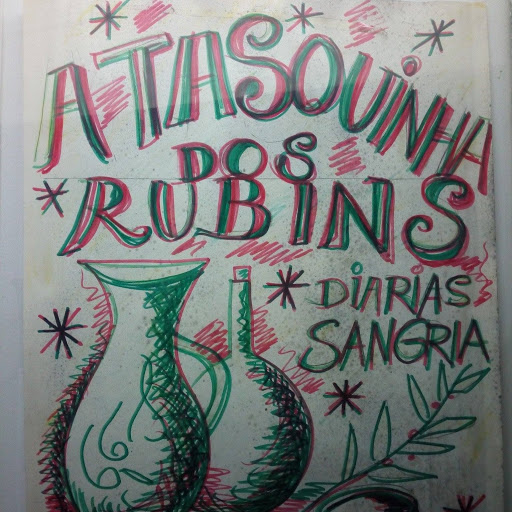 A TASQUINHA
DOS
RUBINS
DIARIAS
SANGRIA